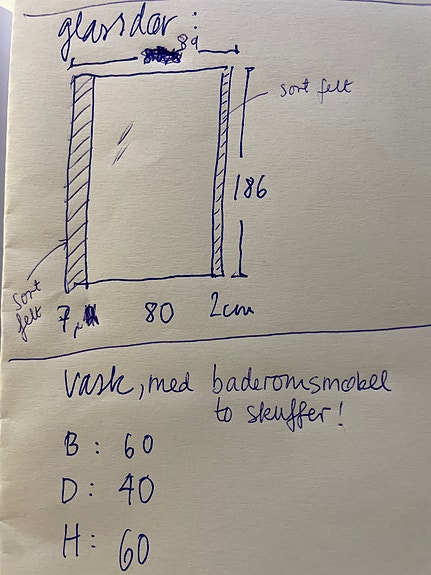 glassdør:
89
sort felt
186
sort
felt
7
80
2cm
vask, med baderomsmøbel
to skuffer!
B: 60
D: 40
H: 60